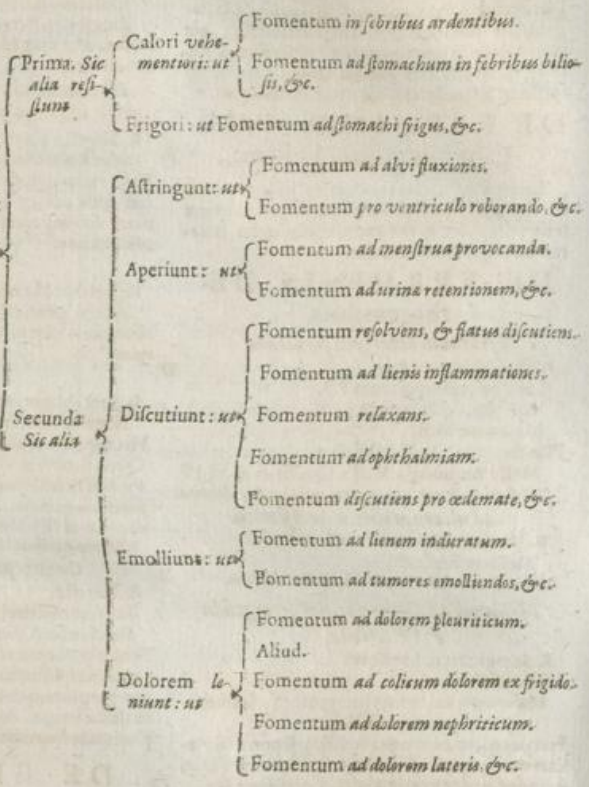 Prima. Sic
alia resi-
stunt
Calori vehe-
mentiori: ut
Fomentum in febribus ardentibus.
Fomentum ad stomachum in febribus bilio-
sis, &c.
Frigori: ut Fomentum ad stomachi frigus, &c.
Secunda
Sic alia
Astringunt: ut
Fomentum ad alvi fluxiones.
Fomentum pro ventriculo roborando, &c.
Aperiunt: ut
Fomentum ad menstrua provocanda.
Fomentum ad urinæ retentionem, &c.
Discutiunt: ut
Fomentum resolvens, & flatus discutiens.
Fomentum ad lienis inflammationes.
Fomentum relaxans.
Fomentum ad ophthalmiam.
Fomentum discutiens pro œdemate, &c.
Emolliunt: ut
Fomentum ad lienem induratum.
Fomentum ad tumores emolliendos, &c.
Dolorem le-
niunt: ut
Fomentum ad dolorem pleuriticum.
Aliud.
Fomentum ad colicum dolorem ex frigido.
Fomentum ad dolorem nephriticum.
Fomentum ad dolorem lateris &c.